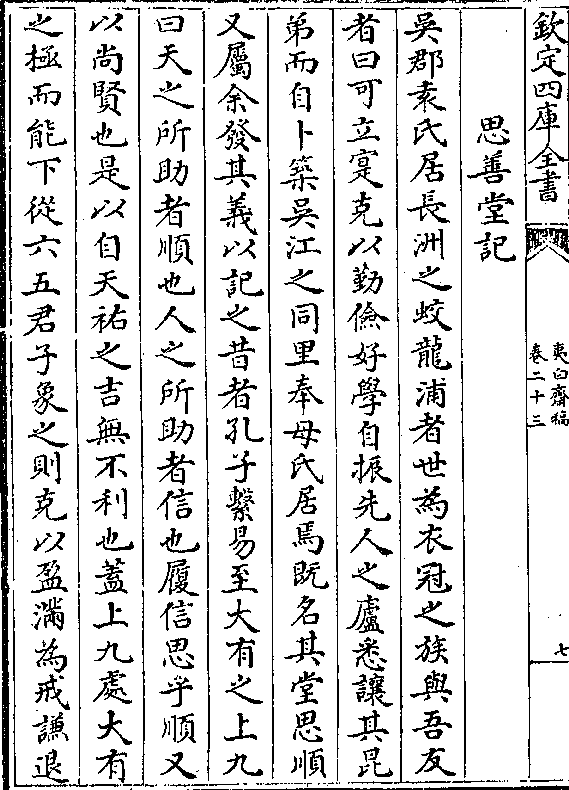 欽定四庫全書
夷白齋稿
卷二十三
七
思善堂記
吳郡袁氏居長洲之蛟龍浦者世為衣冠之族與吾友
者曰可立寔克以勤儉好學自振先人之廬悉讓其昆
弟而自卜築吳江之同里奉母氏居焉既名其堂思順
又屬余發其義以記之昔者孔子繫易至大有之上九
曰天之所助者順也人之所助者信也履信思乎順又
以尚賢也是以自天祐之吉無不利也蓋上九處大有
之極而能下從六五君子象之則克以盈滿為戒謙退